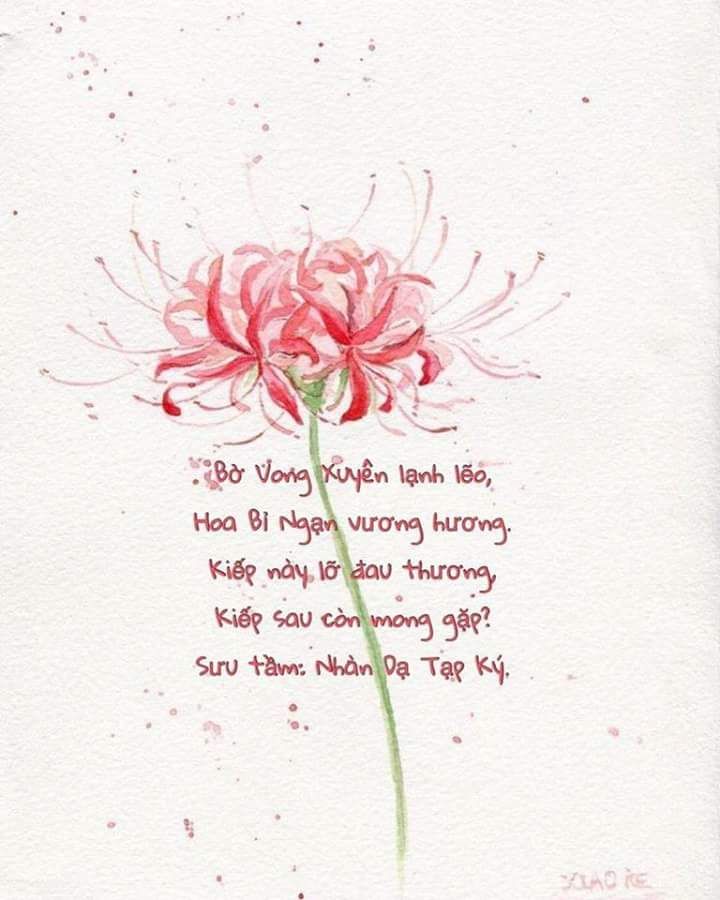 Bờ Vong Xuyên lạnh lẽo,
Hoa Bỉ Ngạn vương hương.
Kiếp này lỡ đau thương,
Kiếp sau còn mong gặp?
Sưu tầm: Nhàn Dạ Tạp Ký.
XIAO KE